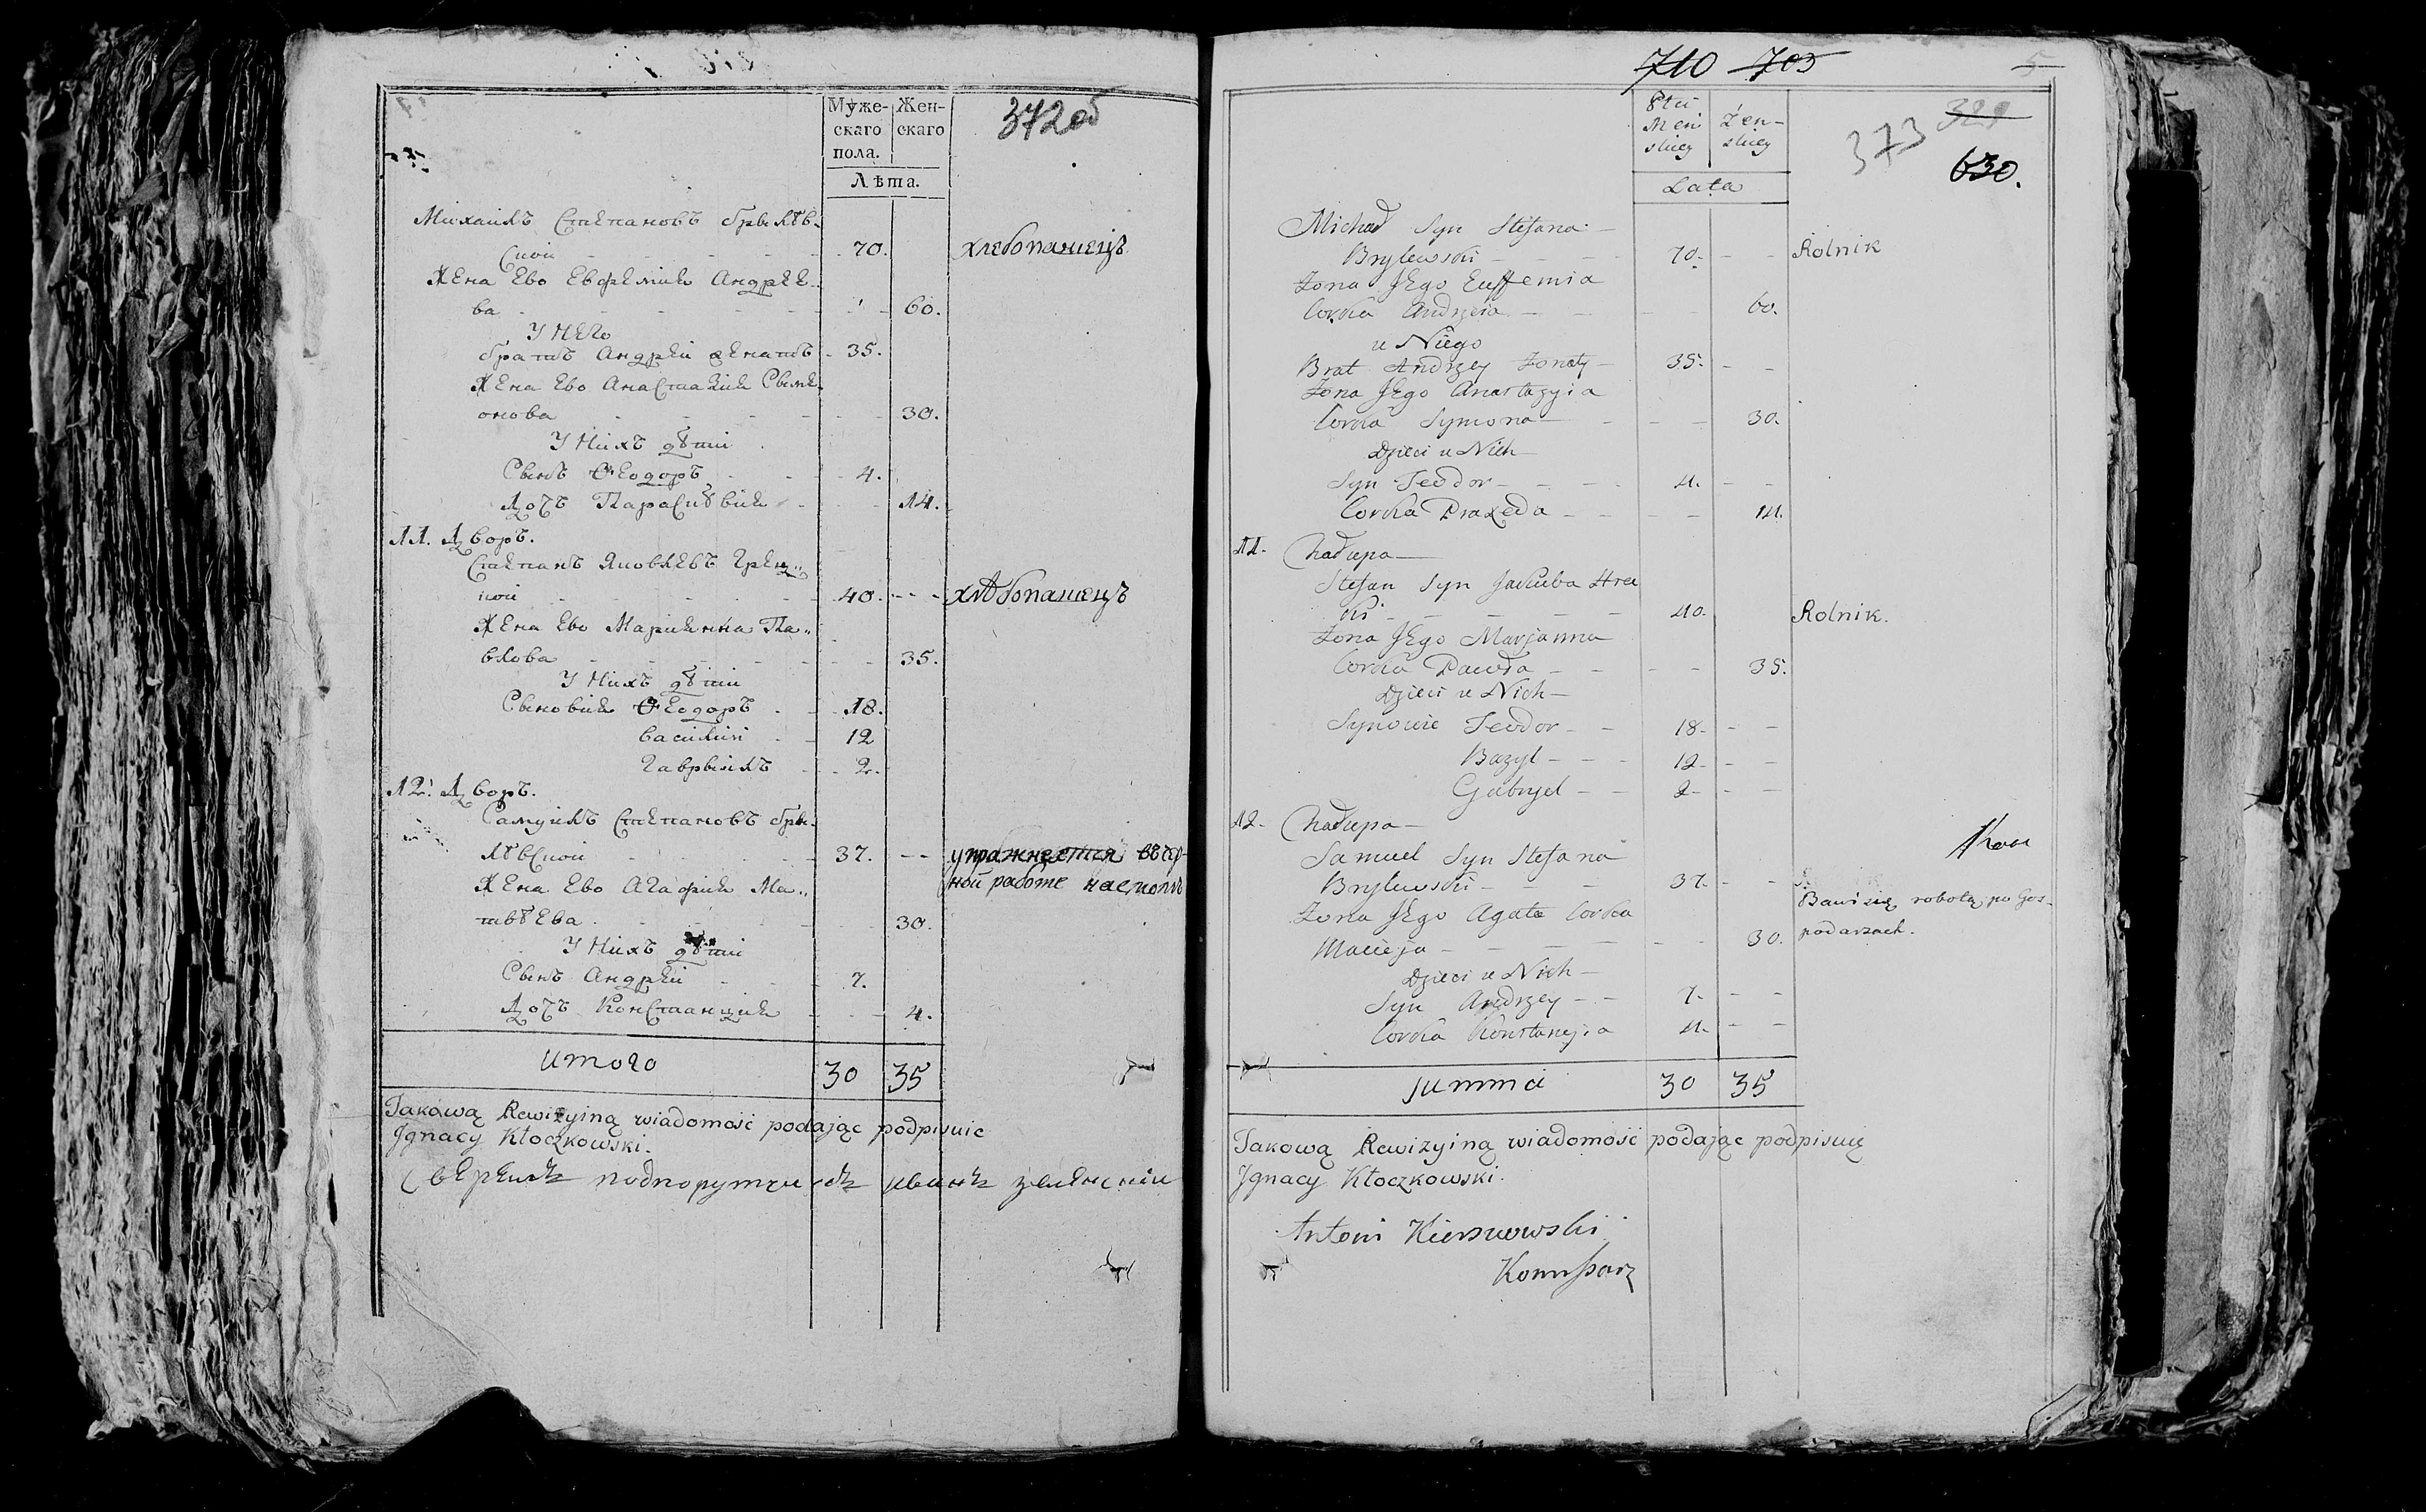 Муже-
скаго
пола.
Жен-
скаго
Лѣта.
372об
Михаилъ Степановъ брылѣв-
ской 70. хлебопашецъ
Жена Ево Евфемия Андрее-
ва 60.
У Него
братъ Андреи женатъ 35.
Жена Ево Анастазия Сыме-
онова 30.
У Нихъ дѣти
Сынъ Ѳеодоръ 4.
Дочъ Парасковия 14.
11. Дворъ.
Степанъ Яковлевъ Грец-
кои 40. хлѣбопашецъ
Жена Ево Марианна Па-
влова 35.
У Нихъ дѣти
Сыновия Ѳеодоръ 18.
василии 12
Гаврыилъ 2.
12. Дворъ.
Самуилъ Степановъ бры-
лѣвскои 37.
ной работе
Жена Ево Агафия Ма-
твѣева 30.
У Нихъ дѣти
Сынъ Андреи 7.
Дочъ Констанция 4.
итого 30 35
Takową Rewizyiną wiadomość podając podpisuie
Jgnacy Kłoczkowski.
сверялъ подпорутчикъ иванъ
710 703
5
Płci
Męs
skiey
Żen-
skiey
Lata
373 329
630.
Michał Syn Stefana
Brylewski 70. Rolnik
Żona Jego Euffemia
Corka Andrzeia 60.
u Niego
Brat Andrzey Żonaty 35.
Żona Jego Anastazyia
Corka Symona 30.
Dzieci u Nich
Syn Teodor 4.
Corka Praxeda 14.
11. Chałupa
Stefan Syn Jakuba Hrec
ki 40. Rolnik.
Żona Jego Marjanna
Corka Pawła 35.
Dzieci u Nich
Synowie Teodor 18.
Bazyl 12.
Gabryel 2
12. Chałupa
Samuel Syn Stefana
Brylewski 37.
Bawi się robotą po Gos-
podarzach.
Żona Jego Agata Corka
Macieja 30.
Dzieci u Nich
Syn Andrzey 7.
Corka Konstancyia 4.
summa 30 35
Takową Rewizyiną wiadomość podając podpisuię
Jgnacy Kłoczkowski.
Antoni Kiersnowski
Kommissarz